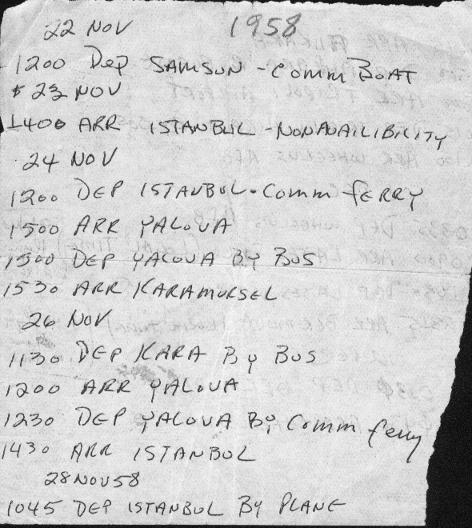 22 NOV 1958
1200 DEP SAMSUN - COMM BOAT
23 NOV
1400 ARR ISTANBUL - NONAVAILIBILITY
24 NOV
1200 DEP ISTANBUL - COMM FERRY
1500 ARR YALOVA
1500 DEP YALOVA BY BUS
1530 ARR KARAMURSEL
26 NOV
1130 DEP KARA BY BUS
1200 ARR YALOVA
1230 DEP YALOVA BY COMM ferry
1430 ARR ISTANBUL
28 NOV 58
1045 DEP ISTANBUL BY PLANE